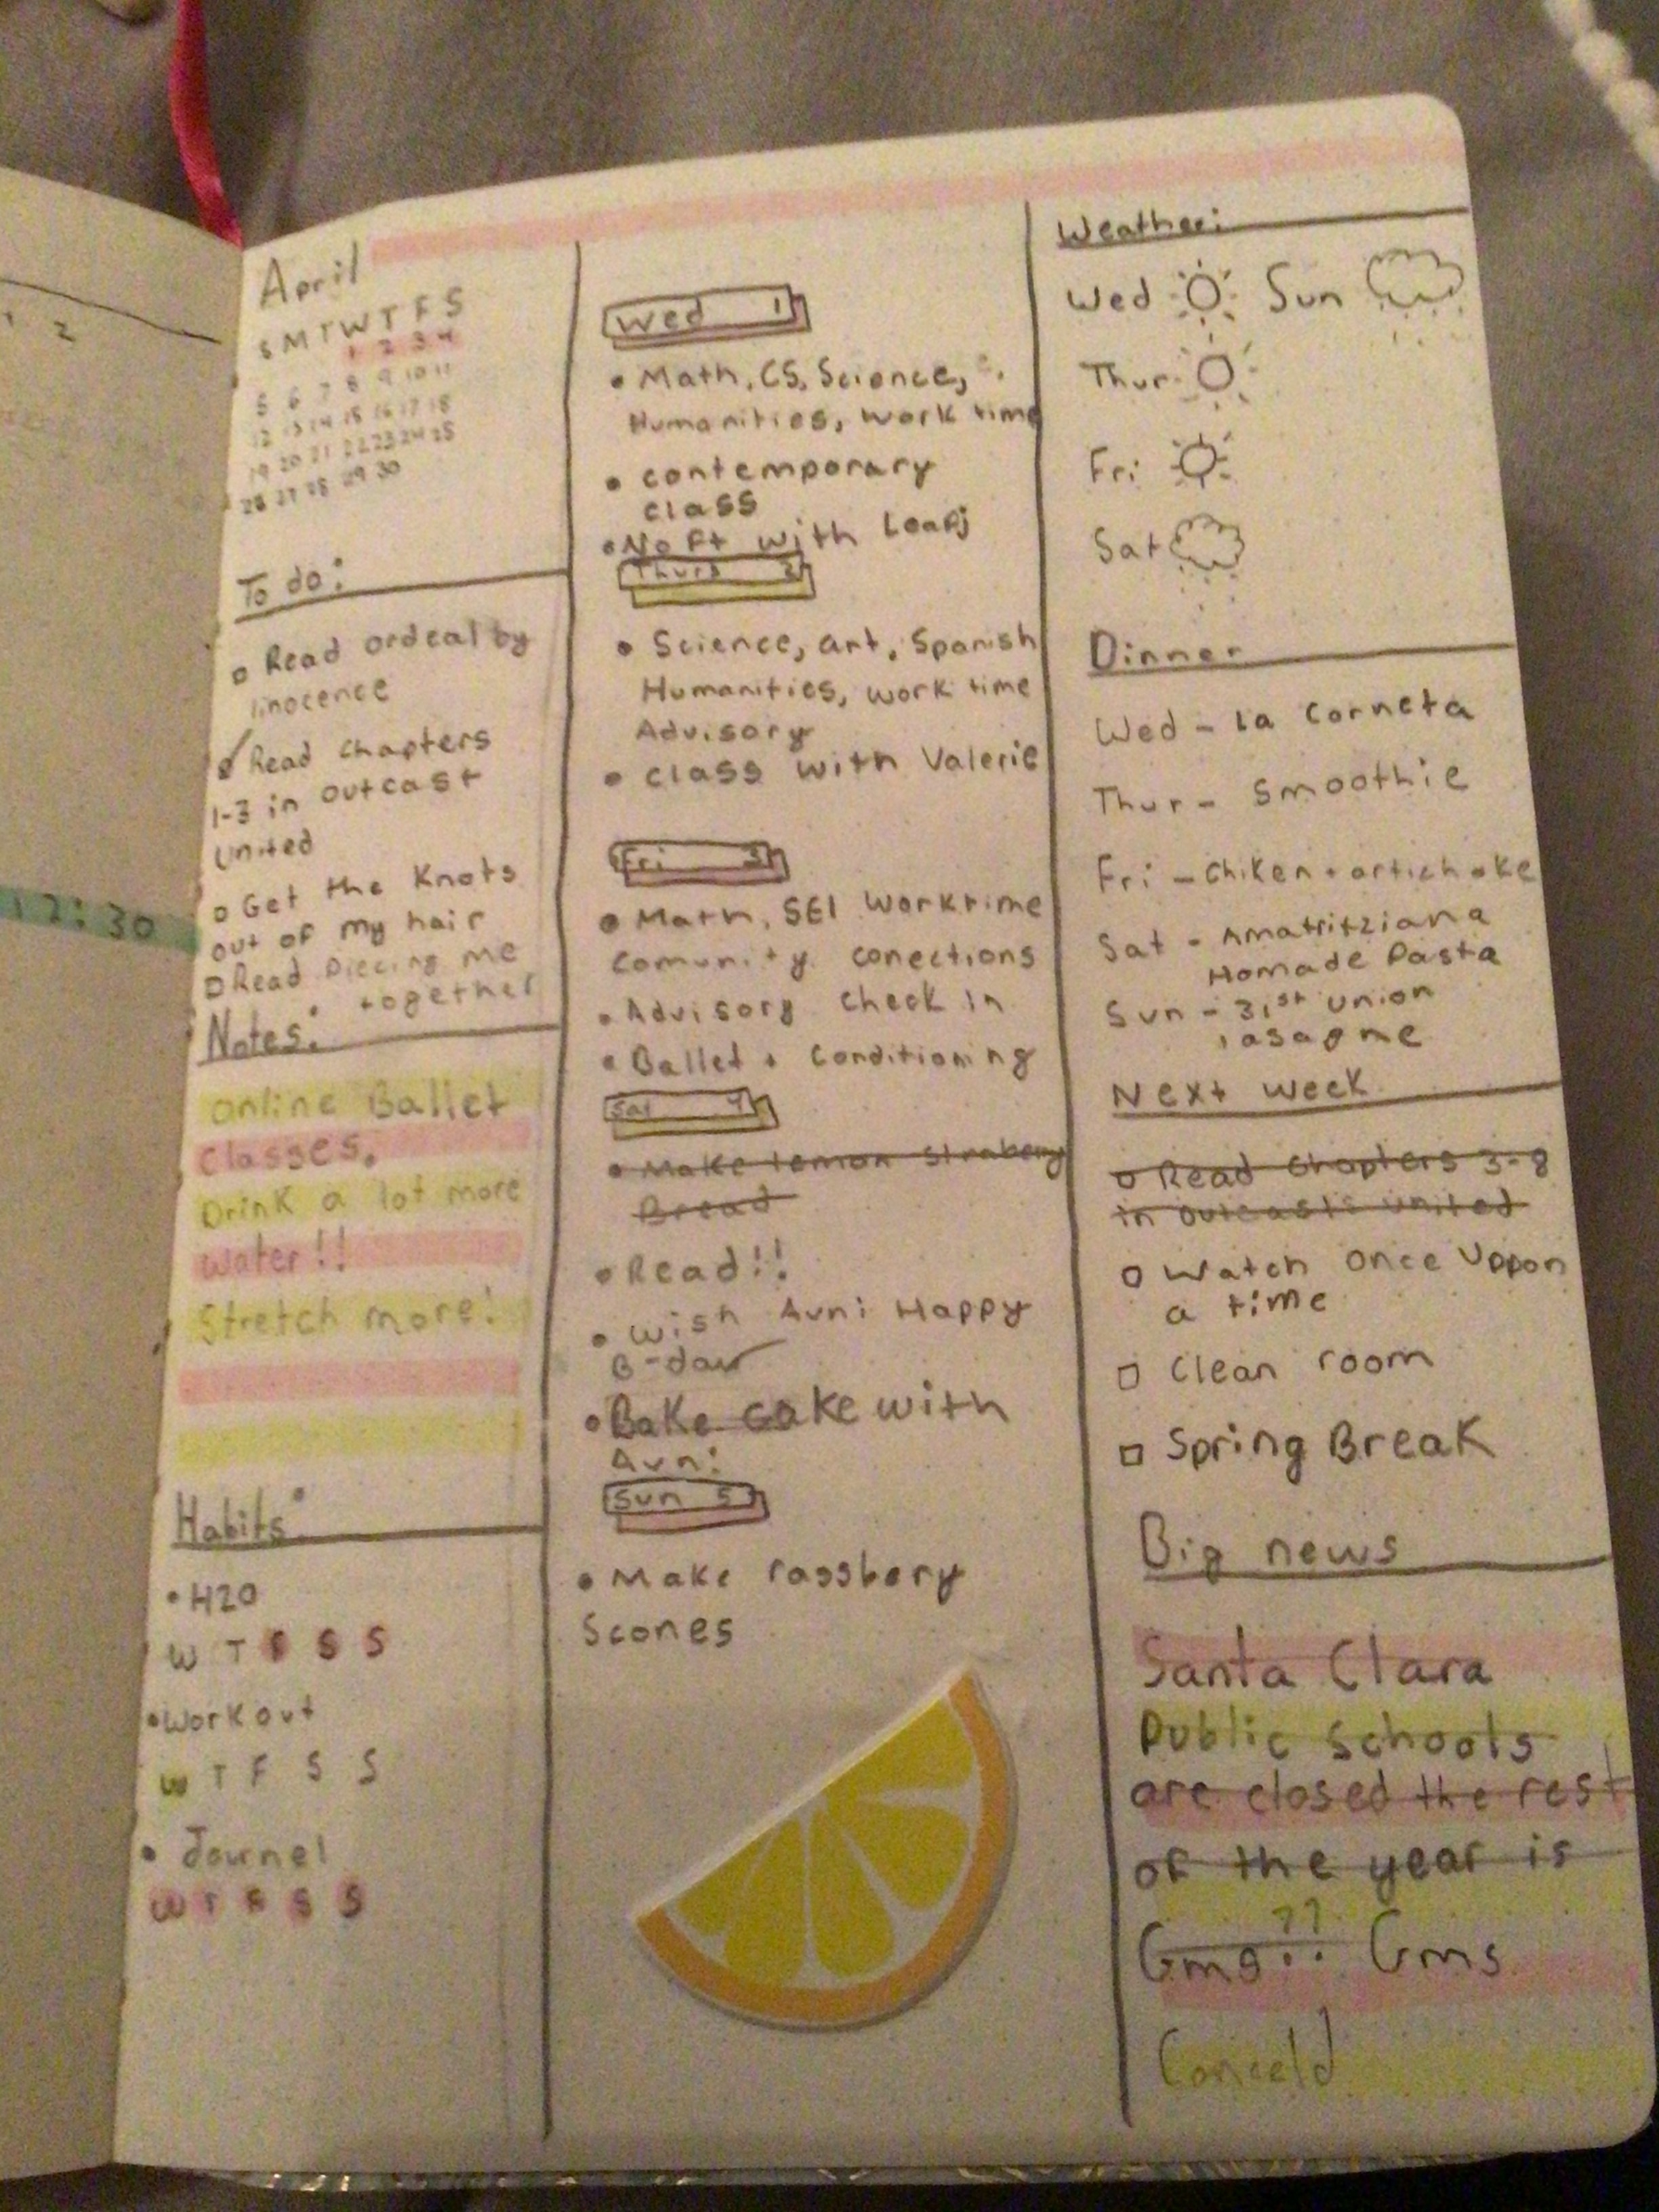 2
12:30
April
S M T W T F S
1 2 3 4
5 6 7 8 9 10 11
12 13 14 15 16 17 18
19 20 21 22 23 24 25
26 27 28 29 30
To do:
Read ordeal by
Innocence
Read Chapters
1-3 in outcast
United
Get the Knots
out of my hair
Read Piecing me
together
Notes:
Online Ballet
Classes.
Drink a lot more
water!!
Stretch more!
Habits:
• H20
W T F S S
• Workout
W T F S S
• Journel
W T F S S
Wed 1
• Math, CS, Science,
Humanities, work time
• contemporary
class
• No Ft with
Thurs 2
• Science, art, Spanish
Humanities, work time
Advisory
• class with Valerie
Fri 3
• Math, SEI Worktime
Comunity conections
• Advisory check in
• Ballet + Conditioning
Sat 4
• Make lemon straberry
Bread
• Read!!
• wish Avni Happy
B-day
• Bake cake with
Avni
Sun 5
• Make rassbery
Scones
Weather:
Wed Sun
Thur
Fri
Sat
Dinner
Wed - la Corneta
Thur - Smoothie
Fri - Chiken + artichoke
Sat - Amatritziana
Homade Pasta
Sun - 31st union
lasagne
Next week
Read Chapters 3-8
in outcasts united
Watch Once Uppon
a time
Clean room
Spring Break
Big news
Santa Clara
Public Schools
are closed the rest
of the year is
??
Gms